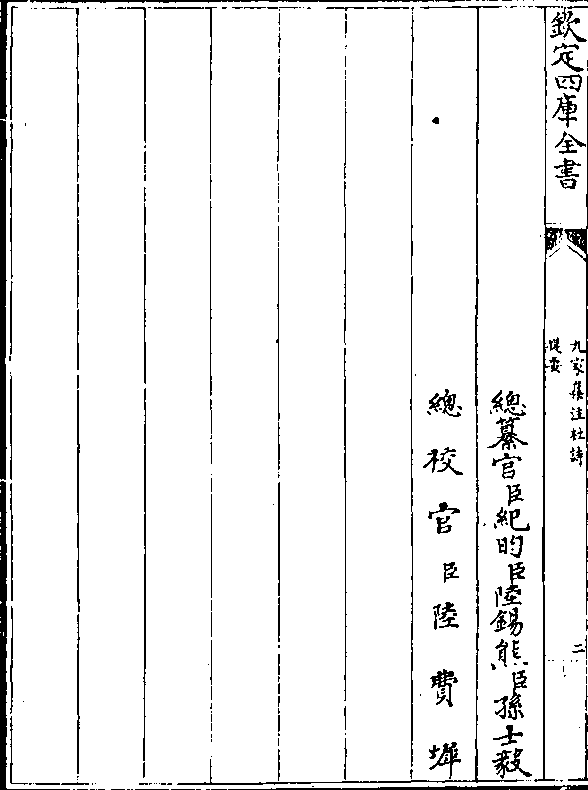 欽定四庫全書
九家集注杜詩
提要
二
總纂官臣紀昀臣陸錫熊臣孫士毅
總校官臣陸費墀